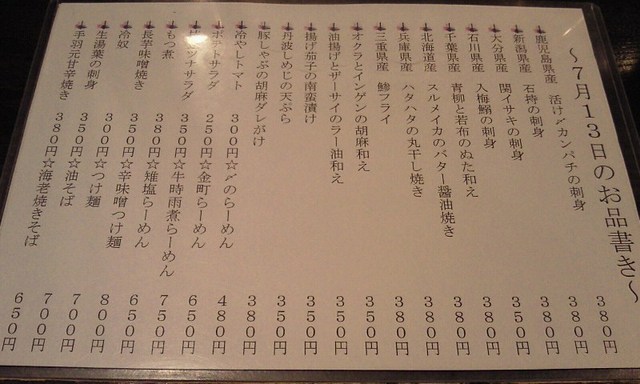 ～7月13日のお品書き～
鹿児島県産 活け〆カンパチの刺身 380円
新潟県産 石持の刺身 380円
大分県産 関イサキの刺身 380円
石川県産 入梅鰯の刺身 350円
千葉県産 青柳と若布のぬた和え 380円
北海道産 スルメイカのバター醤油焼き 380円
兵庫県産 ハタハタの丸干し焼き 380円
三重県産 鯵フライ 380円
オクラとインゲンの胡麻和え 350円
油揚げとザーサイのラー油和え 350円
揚げ茄子の南蛮漬け 350円
丹波しめじの天ぷら 350円
豚しゃぶの胡麻ダレがけ 380円
冷やしトマト 300円☆〆のらーめん 480円
ポテトサラダ 250円☆金町らーめん 650円
ツナサラダ 350円☆牛時雨煮らーめん 750円
もつ煮 380円☆雉塩らーめん 650円
長芋味噌焼き 350円☆辛味噌つけ麺 800円
冷奴 300円☆つけ麺 700円
生湯葉の刺身 350円☆油そば 700円
手羽元甘辛焼き 380円☆海老焼きそば 650円